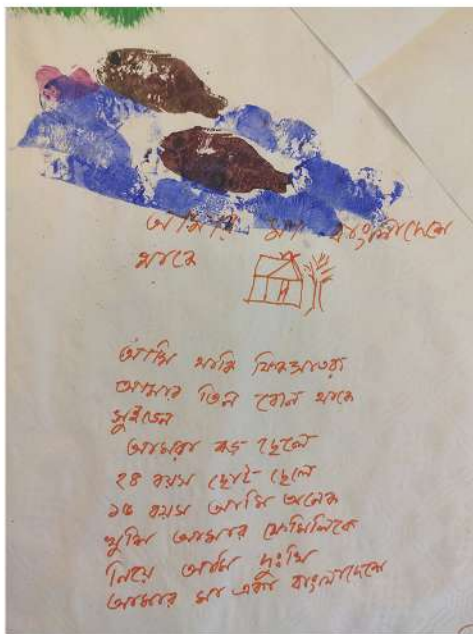 আমার মা বাংলাদেশে
থাকে
আমি থাকি
আমার তিন বোন থাকে
সুইডেন
আমরা বড় ছেলে
২৪ বয়স ছোট ছেলে
১৫ বয়স আমি অনেক
খুশি আমার ফেমিলিকে
নিয়ে আমি দুঃখি
আমার মা একা বাংলাদেশে